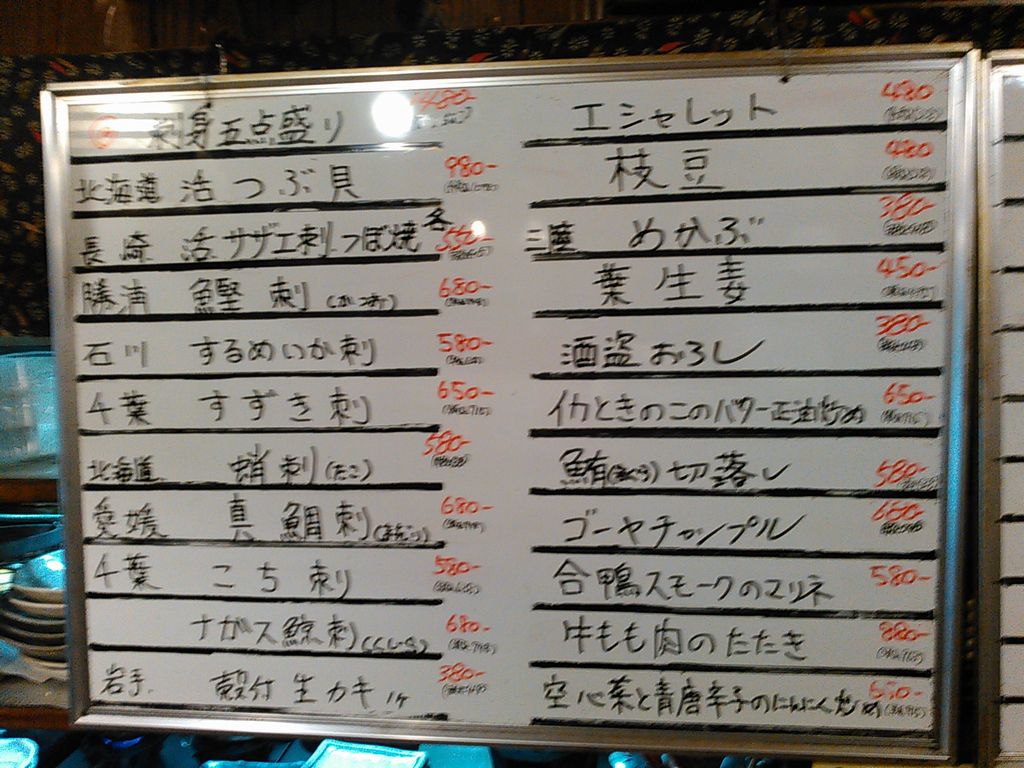 刺身五点盛り 1480-
北海道 活つぶ貝 980-
長崎 活サザエ刺.つぼ焼 各550-
勝浦 鰹刺(かつお) 680-
石川 するめいか刺 580-
千葉 すずき刺 650-
北海道 蛸刺(たこ) 580-
愛媛 真鯛刺 680-
千葉 こち刺 580-
ナガス鯨刺(くじら) 680-
岩手 殻付生カキ 1ヶ 380-
エシャレット 480
枝豆 480
三陸 めかぶ 380-
葉生姜 450-
酒盗おろし 380-
イカときのこのバター正油炒め 650-
鮪(まぐろ)切落し 580-
ゴーヤチャンプル 680-
合鴨スモークのマリネ 580-
牛もも肉のたたき 880-
空心菜と青唐辛子のにんにく炒め 650-